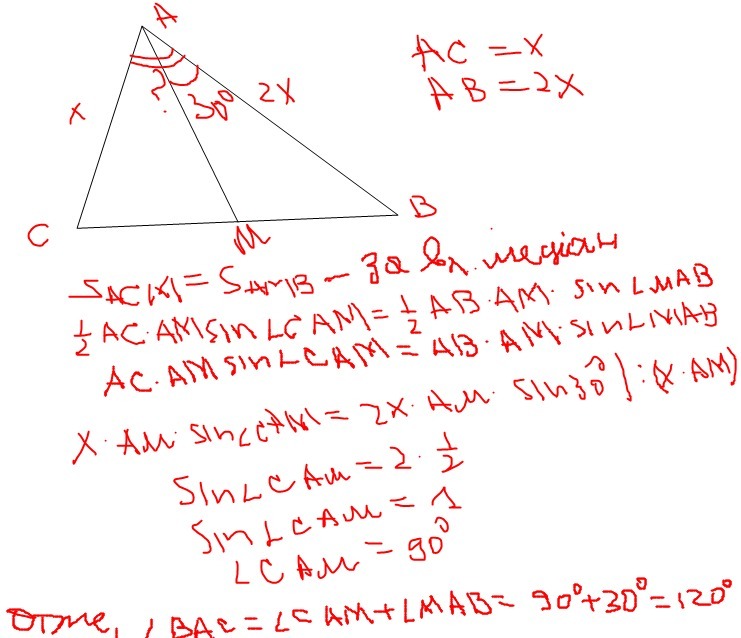 A
AC = x
AB = 2x
x
?
30°
2x
C
M
B
S ACM = S AMB – за вл. медіан
1/2 AC · AM sin∠CAM = 1/2 AB · AM · sin∠MAB
AC · AM sin∠CAM = AB · AM · sin∠MAB
x · AM · sin∠CAM = 2x · AM · sin30°) : (x · AM)
sin∠CAM = 2 · 1/2
sin∠CAM = 1
∠CAM = 90°
Отже, ∠BAC = ∠CAM + ∠MAB = 90° + 30° = 120°